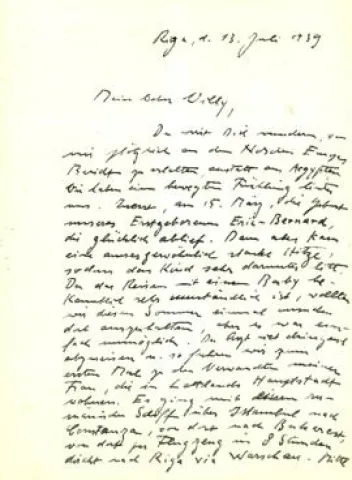 Riga, d. 13. Juli 1939
Mein lieber Willy,
Du wirst Dich wundern, von
mir plötzlich an dem Norden Europas
Bericht zu erhalten, anstatt aus Aegypten
Wir haben einen bewegten Frühling hinter
uns. Zuerst, am 15. März, die Geburt
unseres Erstgeborenen Eric-Bernard,
die glücklich ablief. Dann aber kam
eine aussergewöhnlich starke Hitze,
sodass das Kind sehr darunter litt.
Da das Reisen mit einem Baby be-
kanntlich sehr umständlich ist, wollten
wir diesen Sommer einmal
dort aushalten, aber es war ein-
fach unmöglich. Der Arzt riet dringend
abzureisen u. so fuhren wir zum
ersten Mal zu den Verwandten meiner
Frau, die in Lettlands Hauptstadt
wohnen. Es ging mit einem ru-
mänischen Schiff über Istambul nach
Constanza, von dort nach Bukarest,
von dort per Flugzeug in 8 Stunden
direkt nach Riga via Warschau.